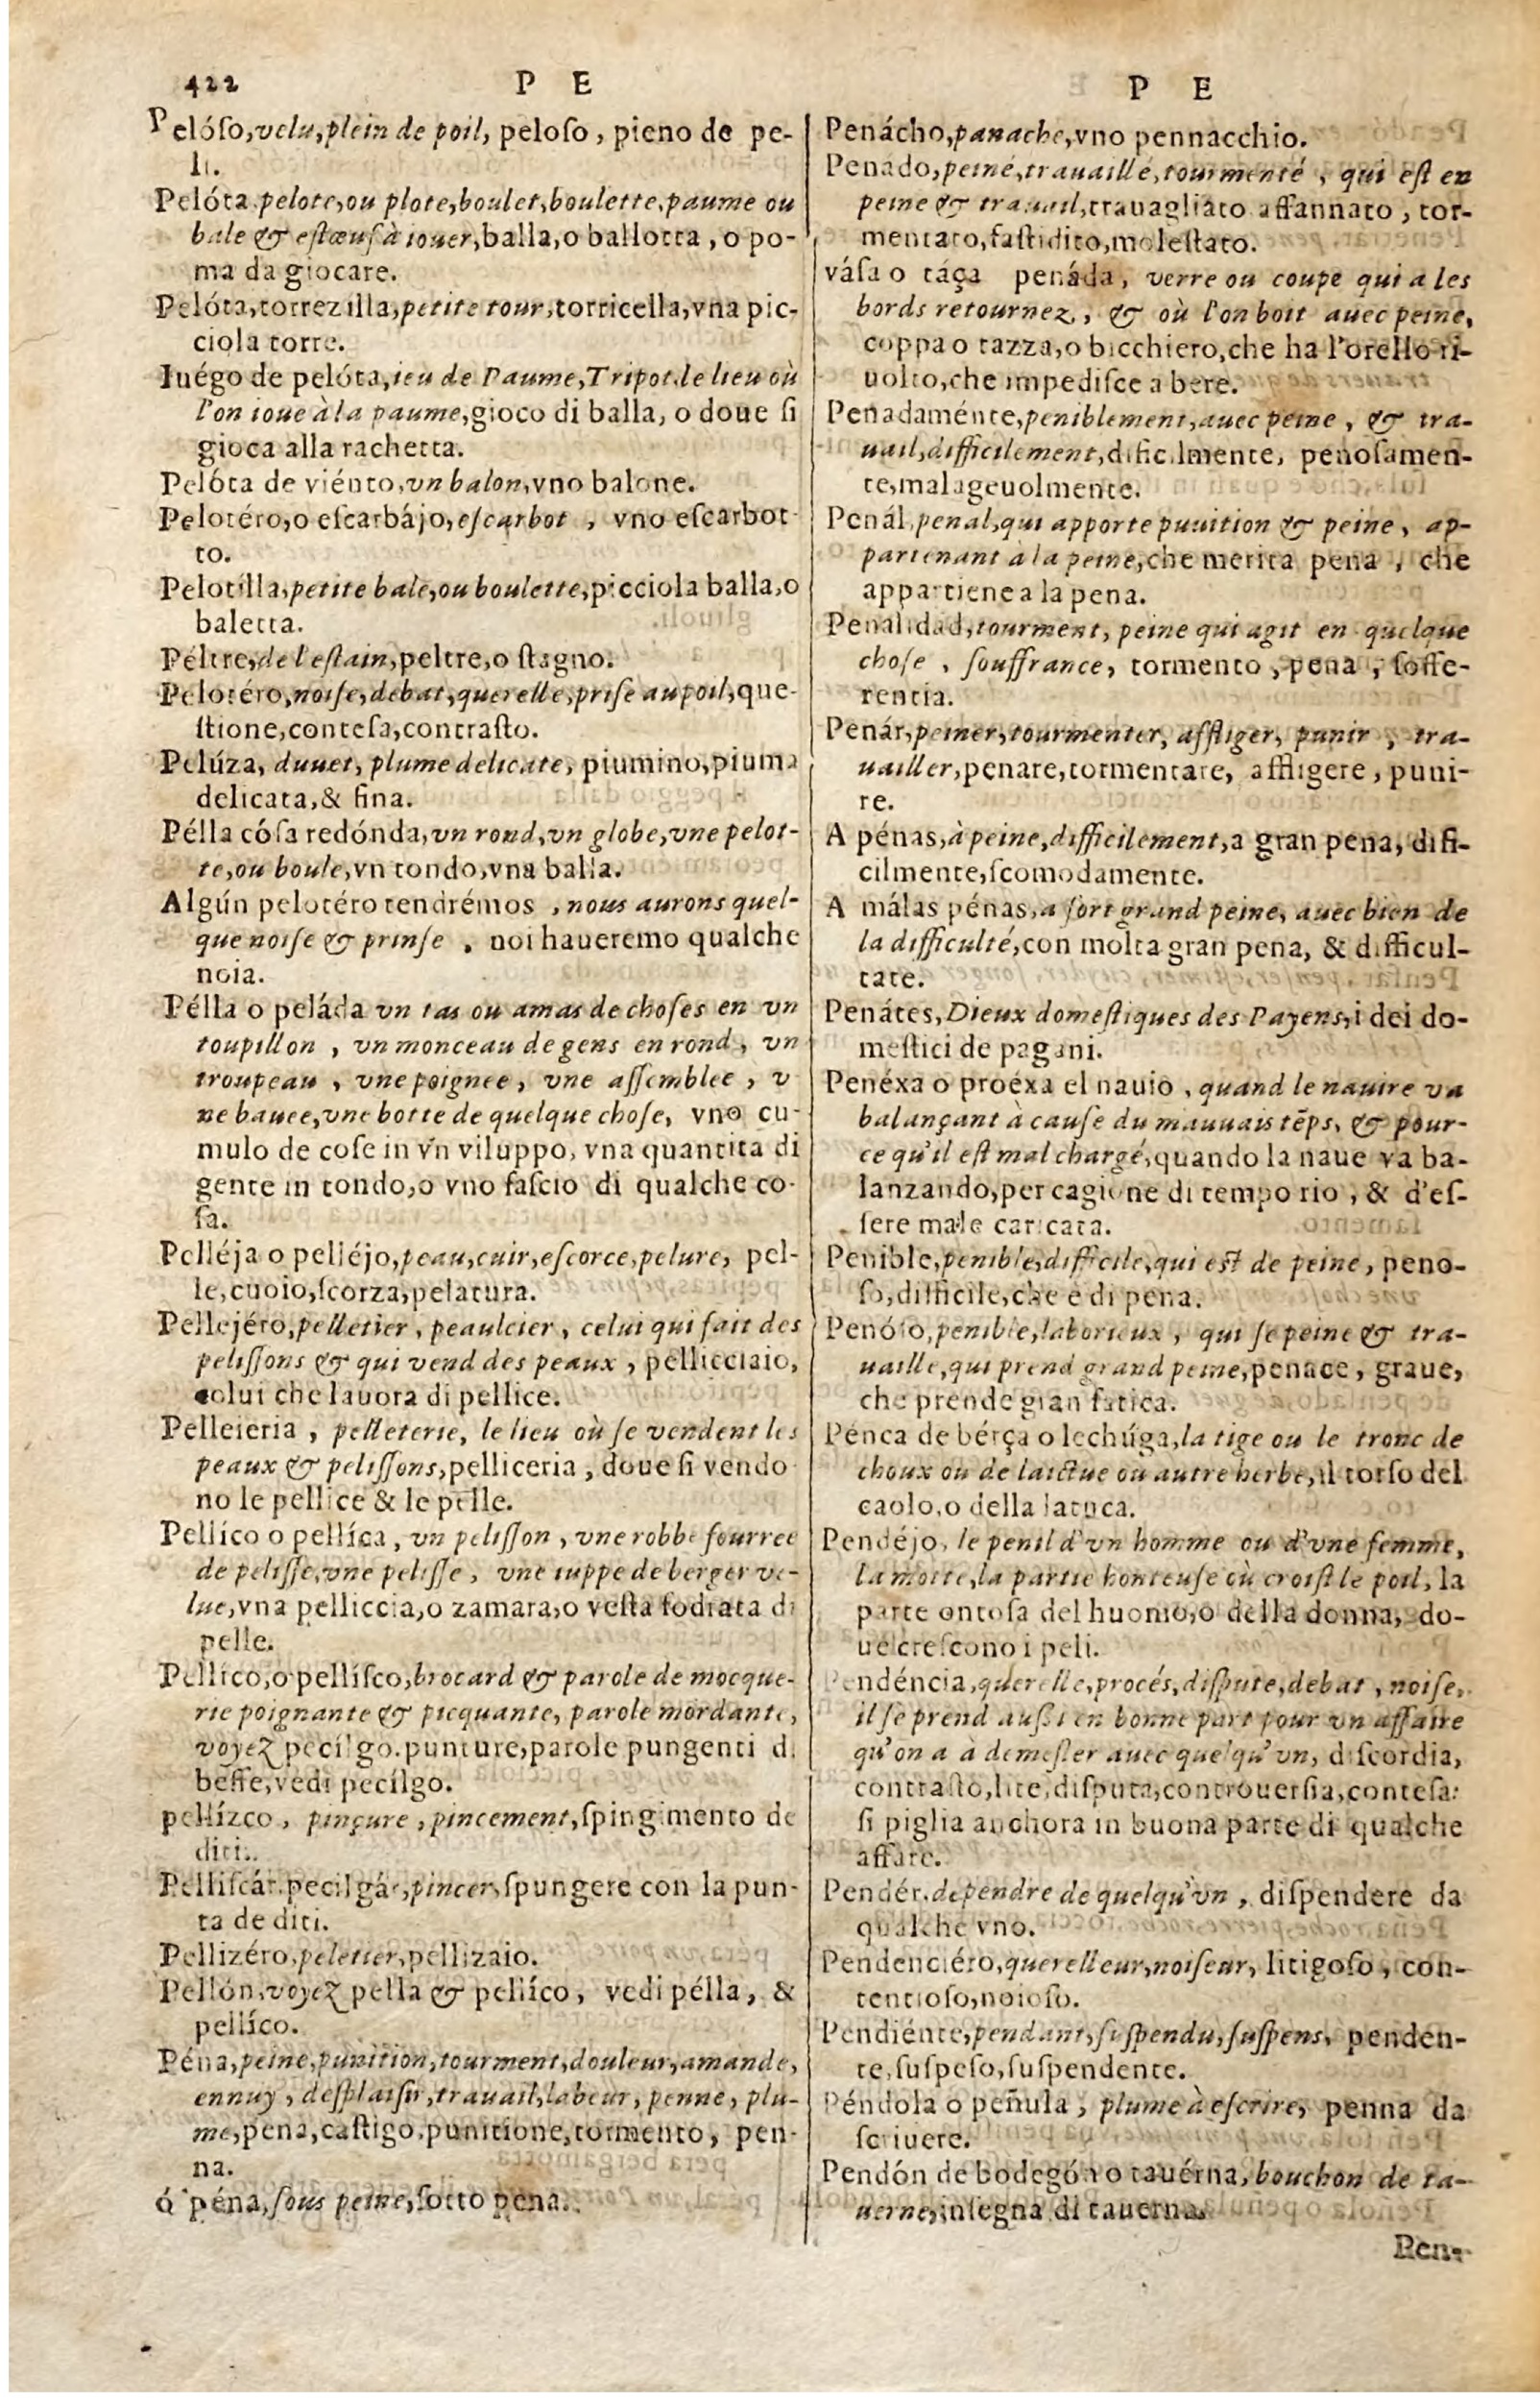 422 P E
Pelóſo,velu,plein de poil, peloſo, pieno de pe-
li.
Pelóta pelote,ou plote,boulet,boulette,paume ou
bale & eſtœuf à iouer,balla,o ballotta, o po-
ma da giocare.
Pelóta,torrezilla,petite tour,torricella,vna pic-
ciola torre.
Iuégo de pelóta,ieu de Paume,Tripot,le lieu où
l'on ioue à la paume,gioco di balla, o doue ſi
gioca alla rachetta.
Pelóta de viénto,vn balon,vno balone.
Pelotéro,o eſcarbájo,eſcarbot, vno eſcarbot
to.
Pelotílla,petite bale,ou boulette,picciola balla,o
baletta.
Péltre,de l'eſtain,peltre,o ſtagno.
Pelotéro,noiſe,debat,querelle,priſe au poil,que-
ſtione,conteſa,contraſto.
Pelúza, duuet, plume delicate, piumino,piuma
delicata,& fina.
Pélla cóſa redónda,vn rond,vn globe,vne pelot-
te,ou boule,vn tondo,vna balla.
Algún pelotéro tendrémos, nous aurons quel-
que noiſe & prinſe, noi haueremo qualche
noia.
Pélla o peláda vn tas ou amas de choſes en vn
toupillon, vn monceau de gens en rond, vn
troupeau, vne poignee, vne aſſemblee, v
ne bauee,vne botte de quelque choſe, vno cu-
mulo de coſe in vn viluppo, vna quantita di
gente in tondo,o vno faſcio di qualche co-
ſa.
Pelléja o pelléjo,peau,cuir,eſcorce,pelure, pel-
le,cuoio,ſcorza,pelatura.
Pellejéro,pelletier, peaulcier, celui qui fait des
peliſſons & qui vend des peaux, pellicciaio,
colui che lauora di pellice.
Pelleieria, pelleterie, le lieu où ſe vendent les
peaux & peliſſons,pelliceria, doue ſi vendo
no le pellice & le pelle.
Pellíco o pellíca, vn peliſſon, vne robbe fourree
de peliſſe,vne peliſſe, vne iuppe de berger ve-
lue,vna pelliccia,o zamara,o veſta fodrata di
pelle.
Pellíco,o pellíſco,brocard & parole de mocque-
rie poignante & picquante, parole mordante,
voyez pecílgo.punture,parole pungenti di
beffe,vedi pecílgo.
pellízco, pinçure, pincement,ſpingimento de
diti.
Pelliſcár.pecilgár,pincer,ſpungere con la pun-
ta de diti.
Pellizéro,peletier,pellizaio.
Pellón,voyez pella & pellíco, vedi pélla, &
pellíco.
Péna,peine,punition,tourment,douleur,amande,
ennuy, deſplaiſir,trauail,labeur, penne, plu-
me,pena,caſtigo,punitione,tormento, pen-
na.
ó péna,ſous peine,ſotto pena.
P E
Penácho,panache,vno pennacchio.
Penado,peiné,trauaillé,tourmenté, qui eſt en
peine & trauail,trauagliato affannato, tor-
mentato,faſtidito,moleſtato.
váſa o táça penáda, verre ou coupe qui a les
bords retournez, & où l'on boit auec peine,
coppa o tazza,o bicchiero,che ha l'orello ri-
uolto,che impediſce a bere.
Penadaménte,peniblement,auec peine, & tra-
uail,difficilement,dificilmente, penoſamen-
te,malageuolmente.
Penál,penal,qui apporte punition & peine, ap-
partenant à la peine,che merita pena, che
appartiene a la pena.
Penalidad,tourment, peine qui agit en quelque
choſe, ſouffrance, tormento, pena, ſoffe-
rentia.
Penár,peiner,tourmenter, affliger, punir, tra-
uailler,penare,tormentare, affligere, puni-
re.
A pénas,à peine,difficilement,a gran pena, difi-
cilmente,ſcomodamente.
A málas pénas,a fort grand peine, auec bien de
la difficulté,con molta gran pena, & difficul-
tate.
Penátes,Dieux domeſtiques des Payens,i dei do-
meſtici de pagani.
Penéxa o proéxa el nauio, quand le nauire va
balançant à cauſe du mauuais tẽps, & pour-
ce qu'il eſt mal chargé,quando la naue va ba-
lanzando,per cagione di tempo rio, & d'eſ-
ſere male caricata.
Penible,penible,difficile,qui eſt de peine, peno-
ſo,difficile,che è di pena.
Penóſo,penible,laborieux, qui ſe peine & tra-
uaille,qui prend grand peine,penace, graue,
che prende gran fatica.
Pénca de bérça o lechúga,la tige ou le tronc de
choux ou de laictue ou autre herbe,il torſo del
caolo,o della latuca.
Pendéjo, le penil d'vn homme ou d'vne femme,
la motte,la partie honteuſe où croiſt le poil, la
parte ontoſa del huomo,o della donna, do-
ue creſcono i peli.
Pendéncia,querelle,procés,diſpute,debat, noiſe,
il ſe prend auſſi en bonne part pour vn affaire
qu'on a à demeſler auec quelqu'vn, diſcordia,
contraſto,lite,diſputa,controuerſia,conteſa:
ſi piglia anchora in buona parte di qualche
affare.
Pendér,dependre de quelqu'vn, diſpendere da
qualche vno.
Pendenciéro,querelleur,noiſeur, litigoſo, con-
tentioſo,noioſo.
Pendiénte,pendant,ſuſpendu,ſuſpens, penden-
te,ſuſpeſo,ſuſpendente.
Péndola o peñula, plume à eſcrire, penna da
ſcriuere.
Pendón de bodegón o tauérna, bouchon de ta-
uerne,inſegna di tauerna.
Pen-